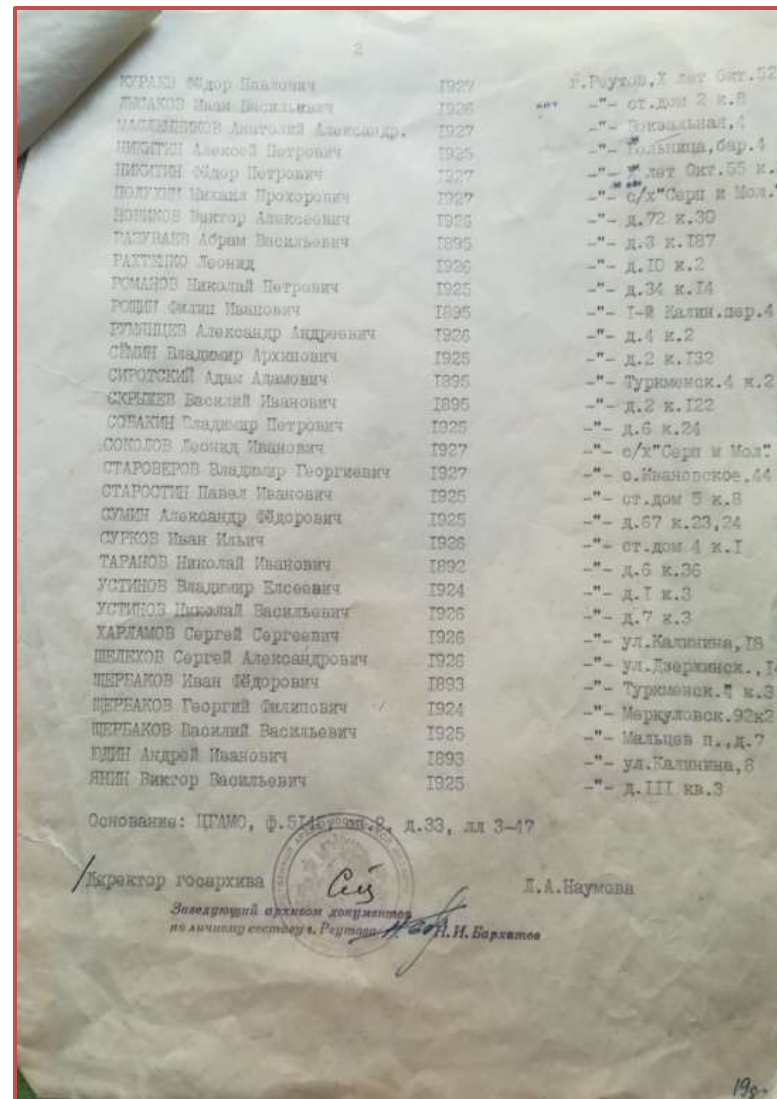 2
КУРАЕВ Фёдор Павлович 1927 г.Реутов,Х лет Окт.52
ЛЫСАКОВ Иван Васильевич 1926 -"- ст.дом 2 к.8
МАСЛЕННИКОВ Анатолий Александр. 1927 -"- Вокзальная,4
НИКИТИН Алексей Петрович 1925 -"- Больница,бар.4
НИКИТИН Фёдор Петрович 1927 -"- Х лет Окт.55 к.
ПОЛУХИН Михаил Прохорович 1927 -"- с/х"Серп и Мол."
НОВИКОВ Виктор Алексеевич 1926 -"- д.72 к.30
РАЗУВАЕВ Абрам Васильевич 1895 -"- д.3 к.187
РАХТЕНКО Леонид 1926 -"- д.10 к.2
РОМАНОВ Николай Петрович 1925 -"- д.34 к.14
РОЩИН Филип Иванович 1895 -"- I-й Калин.пер.4
РУМЯНЦЕВ Александр Андреевич 1926 -"- д.4 к.2
СЁМИН Владимир Архипович 1925 -"- д.2 к.132
СИРОТСКИЙ Адам Адамович 1895 -"- Туркменск.4 к.2
СКРЫЖЕВ Василий Иванович 1895 -"- д.2 к.122
СОБАКИН Владимир Петрович 1925 -"- д.6 к.24
СОКОЛОВ Леонид Иванович 1927 -"- с/х"Серп и Мол"
СТАРОВЕРОВ Владимир Георгиевич 1927 -"- с.Ивановское,44
СТАРОСТИН Павел Иванович 1925 -"- ст.дом 5 к.8
СУМИН Александр Фёдорович 1925 -"- д.67 к.23,24
СУРКОВ Иван Ильич 1926 -"- ст.дом 4 к.I
ТАРАНОВ Николай Иванович 1892 -"- д.6 к.36
УСТИНОВ Владимир Елсеевич 1924 -"- д.I к.3
УСТИНОВ Николай Васильевич 1926 -"- д.7 к.3
ХАРЛАМОВ Сергей Сергеевич 1926 -"- ул.Калинина,18
ШЕЛЕХОВ Сергей Александрович 1926 -"- ул.Дзержинск.,14
ЩЕРБАКОВ Иван Фёдорович 1893 -"- Туркменск. к.3
ЩЕРБАКОВ Георгий Филипович 1924 -"- Меркуловск.92к2
ЩЕРБАКОВ Василий Васильевич 1925 -"- Мальцев п.,д.7
ЮДИН Андрей Иванович 1893 -"- ул.Калинина,8
ЯНИН Виктор Васильевич 1925 -"- д.III кв.3
Основание: ЦГАМО, ф.5145, оп.2, д.33, лл 3-47
Директор госархива Л.А.Наумова
Заведующий архивом документов
по личному составу г. Реутова Н. И. Бархатов